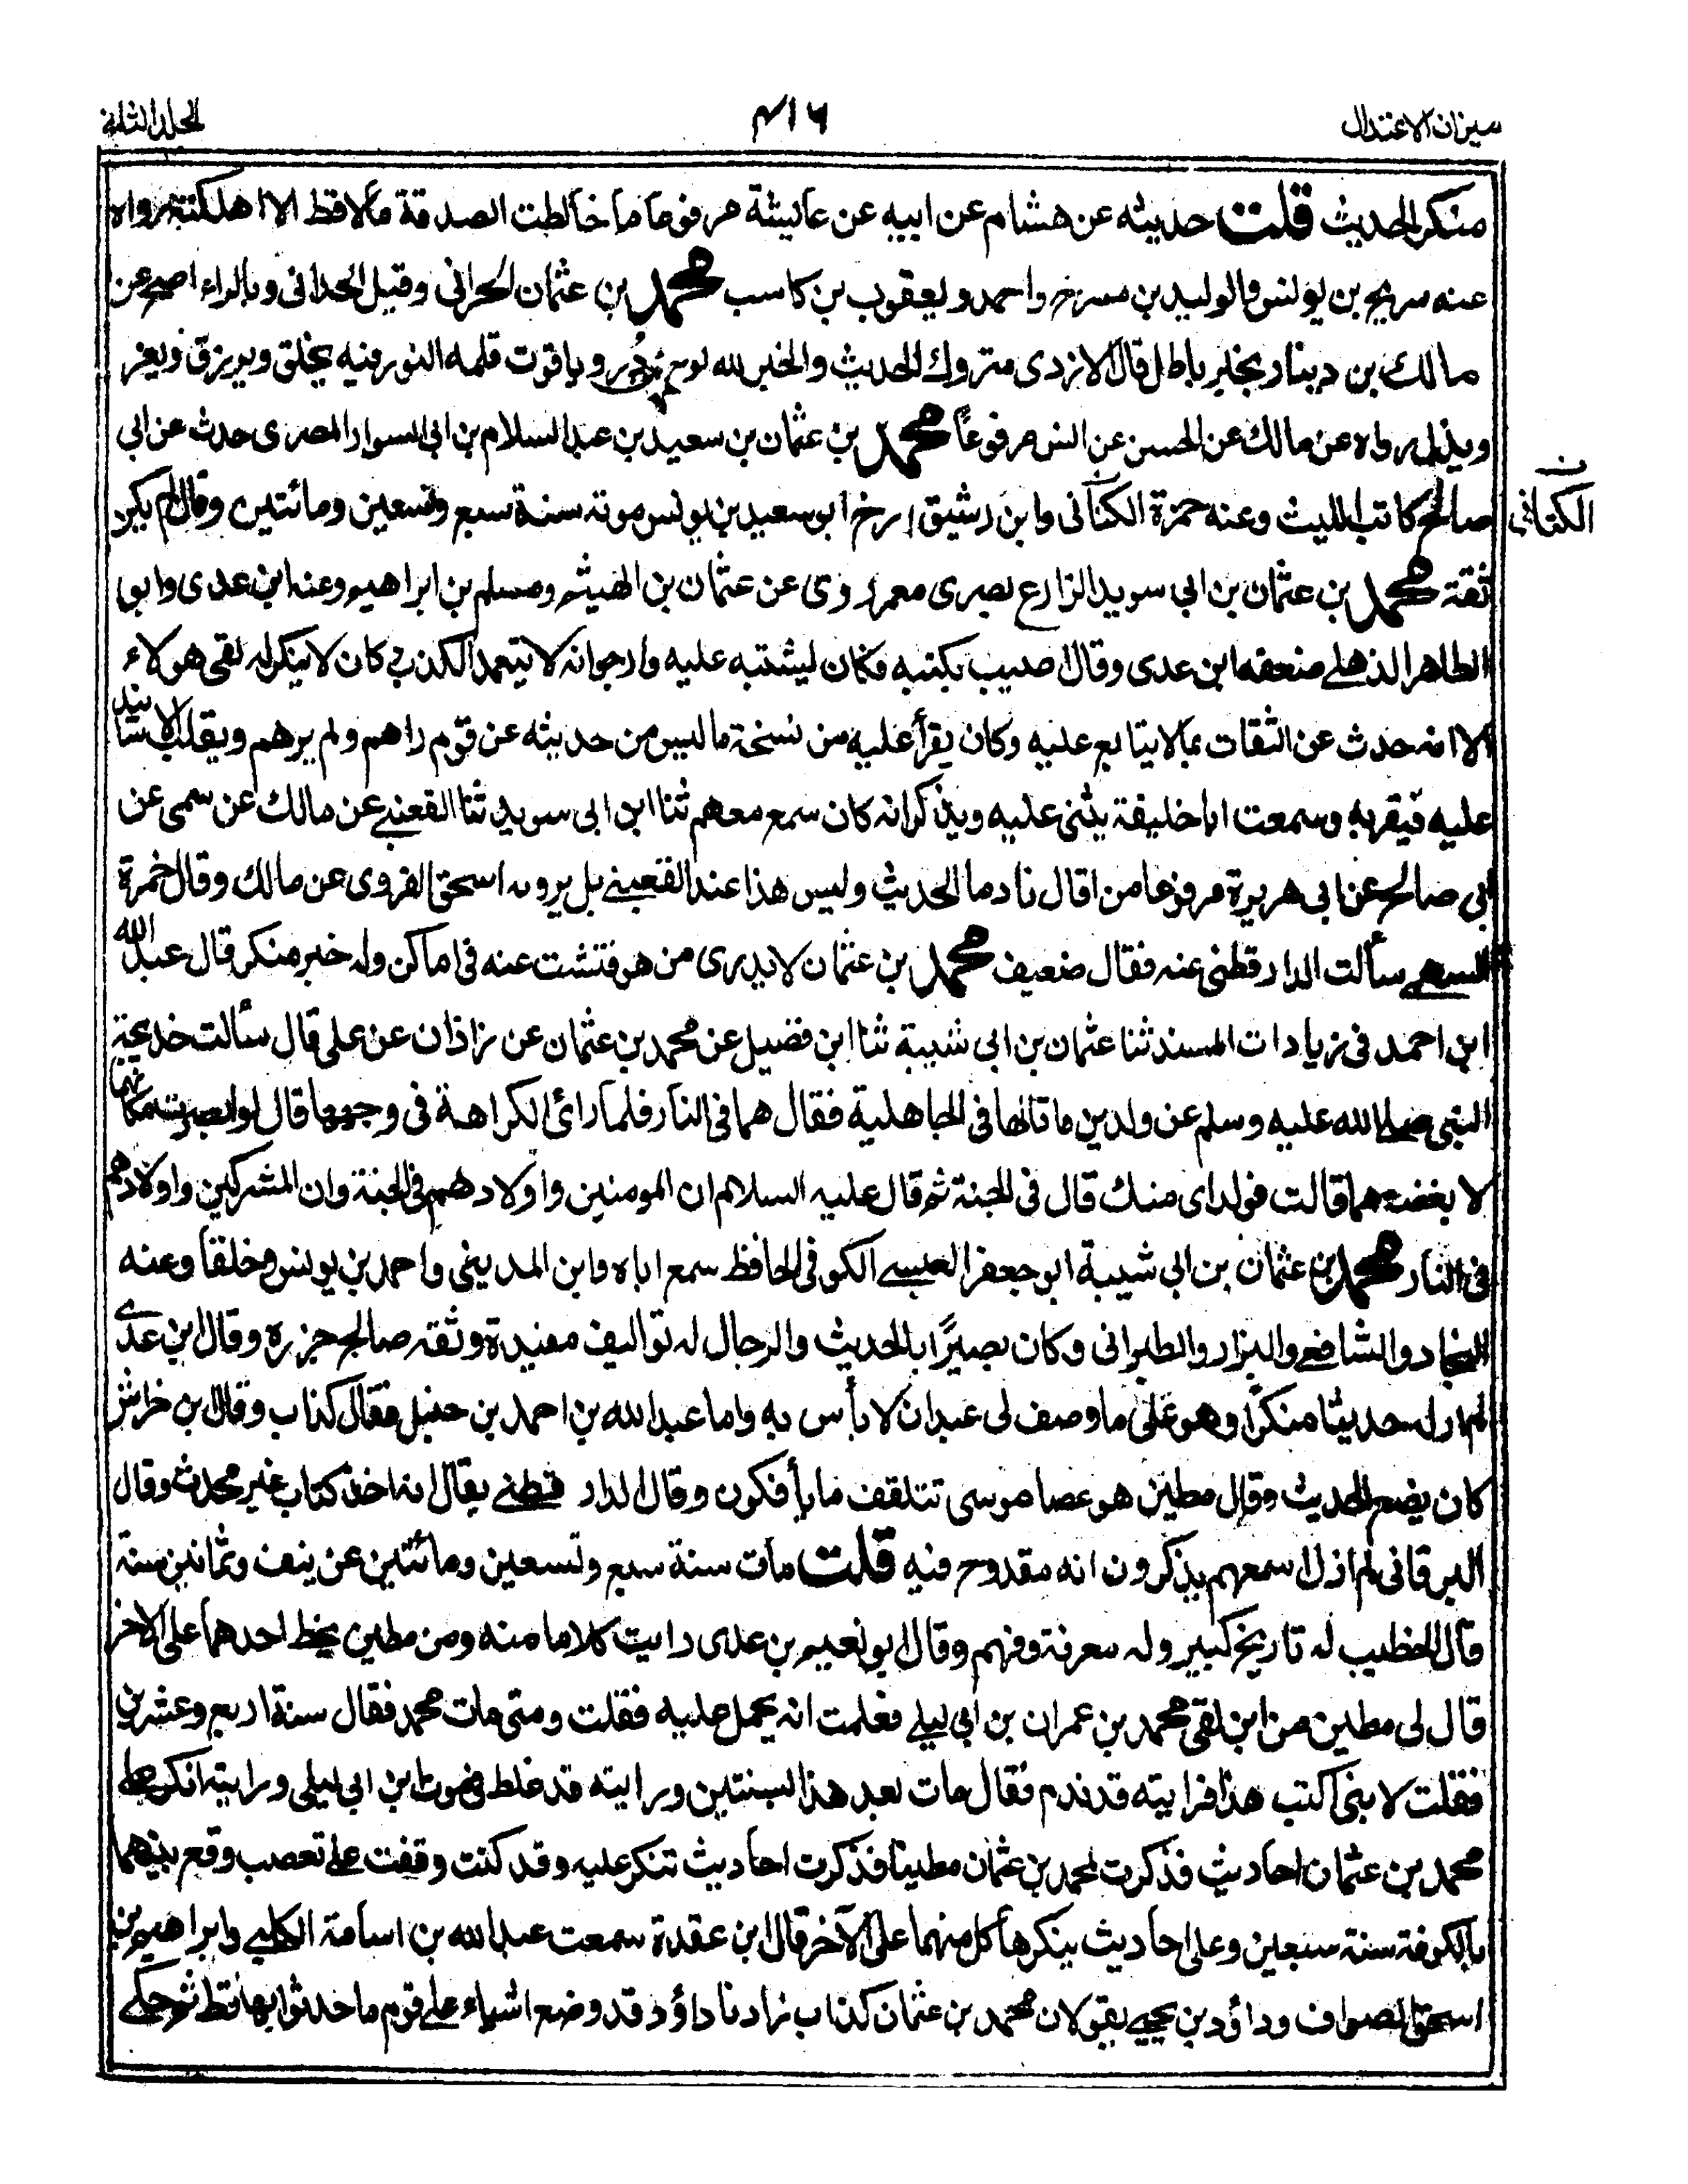 ميزان الاعتدال
۴۱۶
المجلد الثالث
منكر الحديث قلت حديثه عن هشام عن ابيه عن عائشة مرفوعا ما خالطت الصدقة مالا قط الا اهلكته رواه
عنه سريج بن يونس والوليد بن مسرح واحمد و يعقوب بن كاسب محمد بن عثمان الحرانى وقيل الحدانى وبالراء اصح عن
مالك بن دينار بخبر باطل قال الازدى متروك الحديث والخبر لله لوح من در وياقوت قلمه النور فيه يخلق ويرزق ويعز
ويذل رواه عن مالك عن الحسن عن انس مرفوعاً محمد بن عثمان بن سعيد بن عبد السلام بن ابى السوار المصرى حدث عن ابى
صالح كاتب الليث وعنه حمزة الكنانى وابن رشيق ارخ ابو سعيد بن يونس موته سنة سبع وتسعين ومائتين وقال لم يكن
ن
الكتانى
ثقة محمد بن عثمان بن ابى سويد الزارع بصرى معمر روى عن عثمان بن الهيثم ومسلم بن ابراهيم وعنه ابن عدى وابو
الطاهر الذهلى ضعفه ابن عدى وقال اصيب بكتبه فكان يشتبه عليه وارجو انه لا يتعمد الكذب كان لا ينكر له لقى هولاء
الا انه حدث عن الثقات بما لا يتابع عليه وكان يقرأ عليه من نسخة ما ليس من حديثه عن قوم راهم ولم يرهم ويقلب الاسانيد
عليه فيقر به وسمعت ابا خليفة يثنى عليه ويذكر انه كان سمع معهم ثنا ابن ابى سويد ثنا القعنبى عن مالك عن سمى عن
ابى صالح عن ابى هريرة مرفوعا من اقال نادما الحديث وليس هذا عند القعنبى بل يرويه اسحق الفروى عن مالك وقال حمزة
السهمى سألت الدارقطنى عنه فقال ضعيف محمد بن عثمان لا يدرى من هو فتشت عنه فى اماكن وله خبر منكر قال عبد الله
ابن احمد فى زيادات المسند ثنا عثمان بن ابى شيبة ثنا ابن فضيل عن محمد بن عثمان عن زاذان عن على قال سألت خديجة
النبى صلى الله عليه وسلم عن ولدين ماتا لها فى الجاهلية فقال هما فى النار فلما رأئ الكراهة فى وجهها قال لو ابصرت مكانهما
لا بغضتهما قالت فولداى منك قال فى الجنة ثم قال عليه السلام ان المومنين واولادهم فى الجنة وان المشركين واولادهم
فى النار محمد بن عثمان بن ابى شيبة ابو جعفر العبسى الكوفى الحافظ سمع اباه وابن المدينى واحمد بن يونس وخلقا وعنه
النجاد والشافعى والبزار والطبرانى وكان بصيرًا بالحديث والرجال له تواليف مفيدة وثقه صالح جزرة وقال ابن عدى
لم ار له حديثا منكرًا وهو على ما وصف لى عبدان لا بأس به واما عبد الله بن احمد بن حنبل فقال كذاب وقال بن خراش
كان يضع الحديث وقال مطين هو عصا موسى تتلقف ما يأفكون وقال الدار قطنى يقال انه اخذ كتاب غير محدث وقال
البرقانى لم ازل اسمعهم يذكرون انه مقدوح فيه قلت مات سنة سبع وتسعين ومائتين عن نيف وثمانين سنة
قال الخطيب له تاريخ كبير وله معرفة وفهم وقال ابو نعيم بن عدى رايت كلاما منه ومن مطين يحط احدهما على الاخر
قال لى مطين من اين لقى محمد بن عمران بن ابى ليلى فعلمت انه يحمل عليه فقلت ومتى مات محمد فقال سنة اربع وعشرين
فقلت لابنى اكتب هذا فرايته قد ندم فقال مات بعد هذا بسنتين ورايته قد غلط فى موت ابن ابى ليلى ورايته انكر على
محمد بن عثمان احاديث فذكرت لمحمد بن عثمان مطينا فذكرت احاديث تنكر عليه وقد كنت وقفت على تعصب وقع بينهما
بالكوفة سنة سبعين وعلى احاديث ينكرها كل منهما على الآخر قال ابن عقدة سمعت عبد الله بن اسامة الكلبى وابراهيم بن
اسحق الصواف وداؤد بن يحيى يقولان محمد بن عثمان كذاب زادنا داؤد قد وضع اشياء على قوم ما حدثوا بها قط ثم حكى